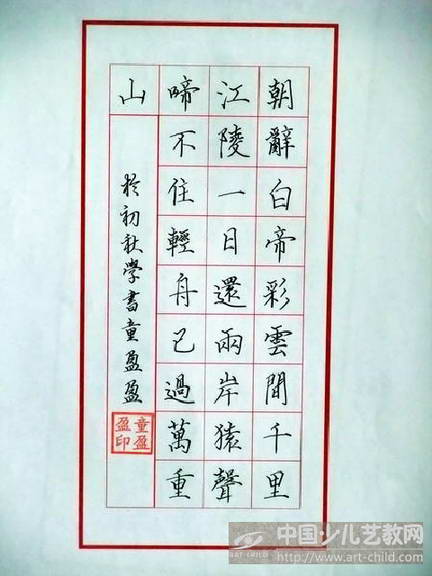 朝辭白帝彩雲間千里
江陵一日還兩岸猿聲
啼不住輕舟已過萬重
山
於初秋學書童盈盈
童盈
盈印
ART CHILD
中国少儿艺教网
http://www.art-child.com